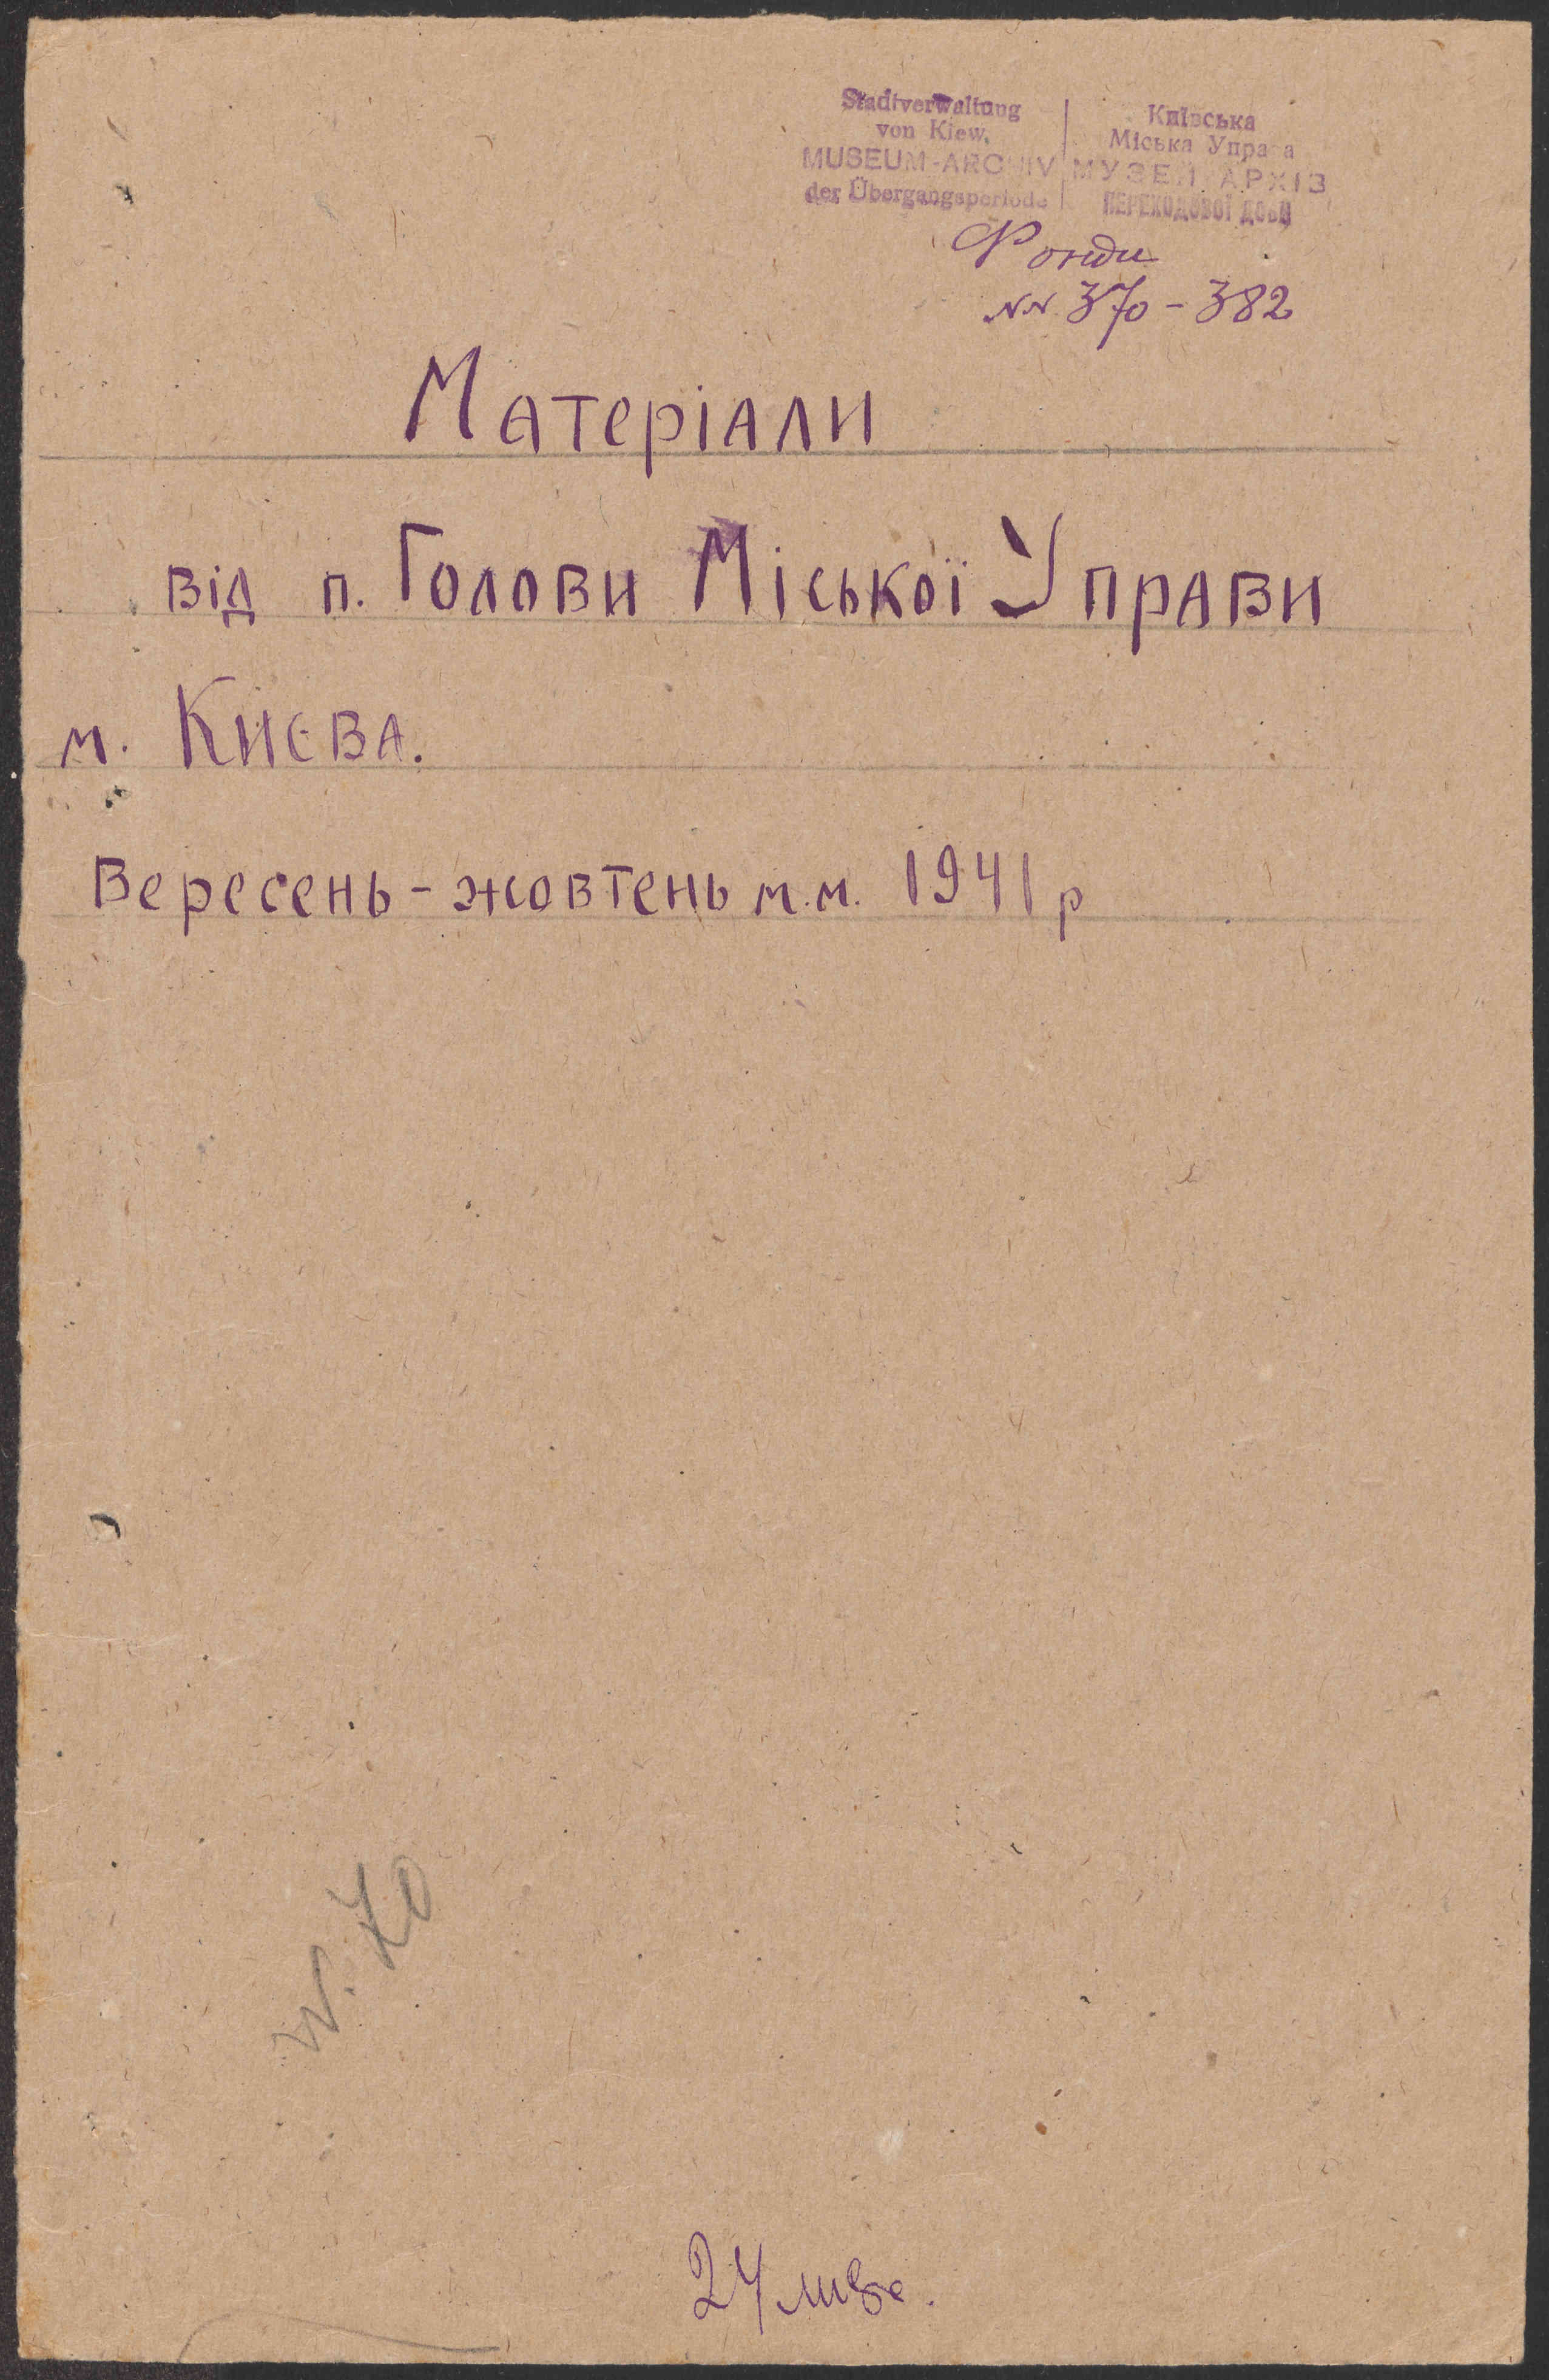 Stadtverwaltung
von Kiew,
MUSEUM-ARCHIV
der Übergangsperiode
Київська
Міська Управа
МУЗЕЙ АРХІВ
ПЕРЕХОДОВОЇ ДОБИ
Фонди
NN 370-382
Матеріали
від п. Голови Міської Управи
м. Києва.
Вересень-жовтень м.м. 1941 р
N. 70
24